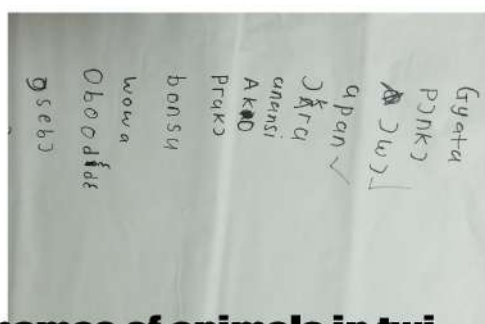 Gyata
pɔnkɔ
ɔwɔ
apan
ɔkra
anansi
Ako
prakɔ
bonsu
wowa
Obood
ɔsebɔ
names of animals in twi